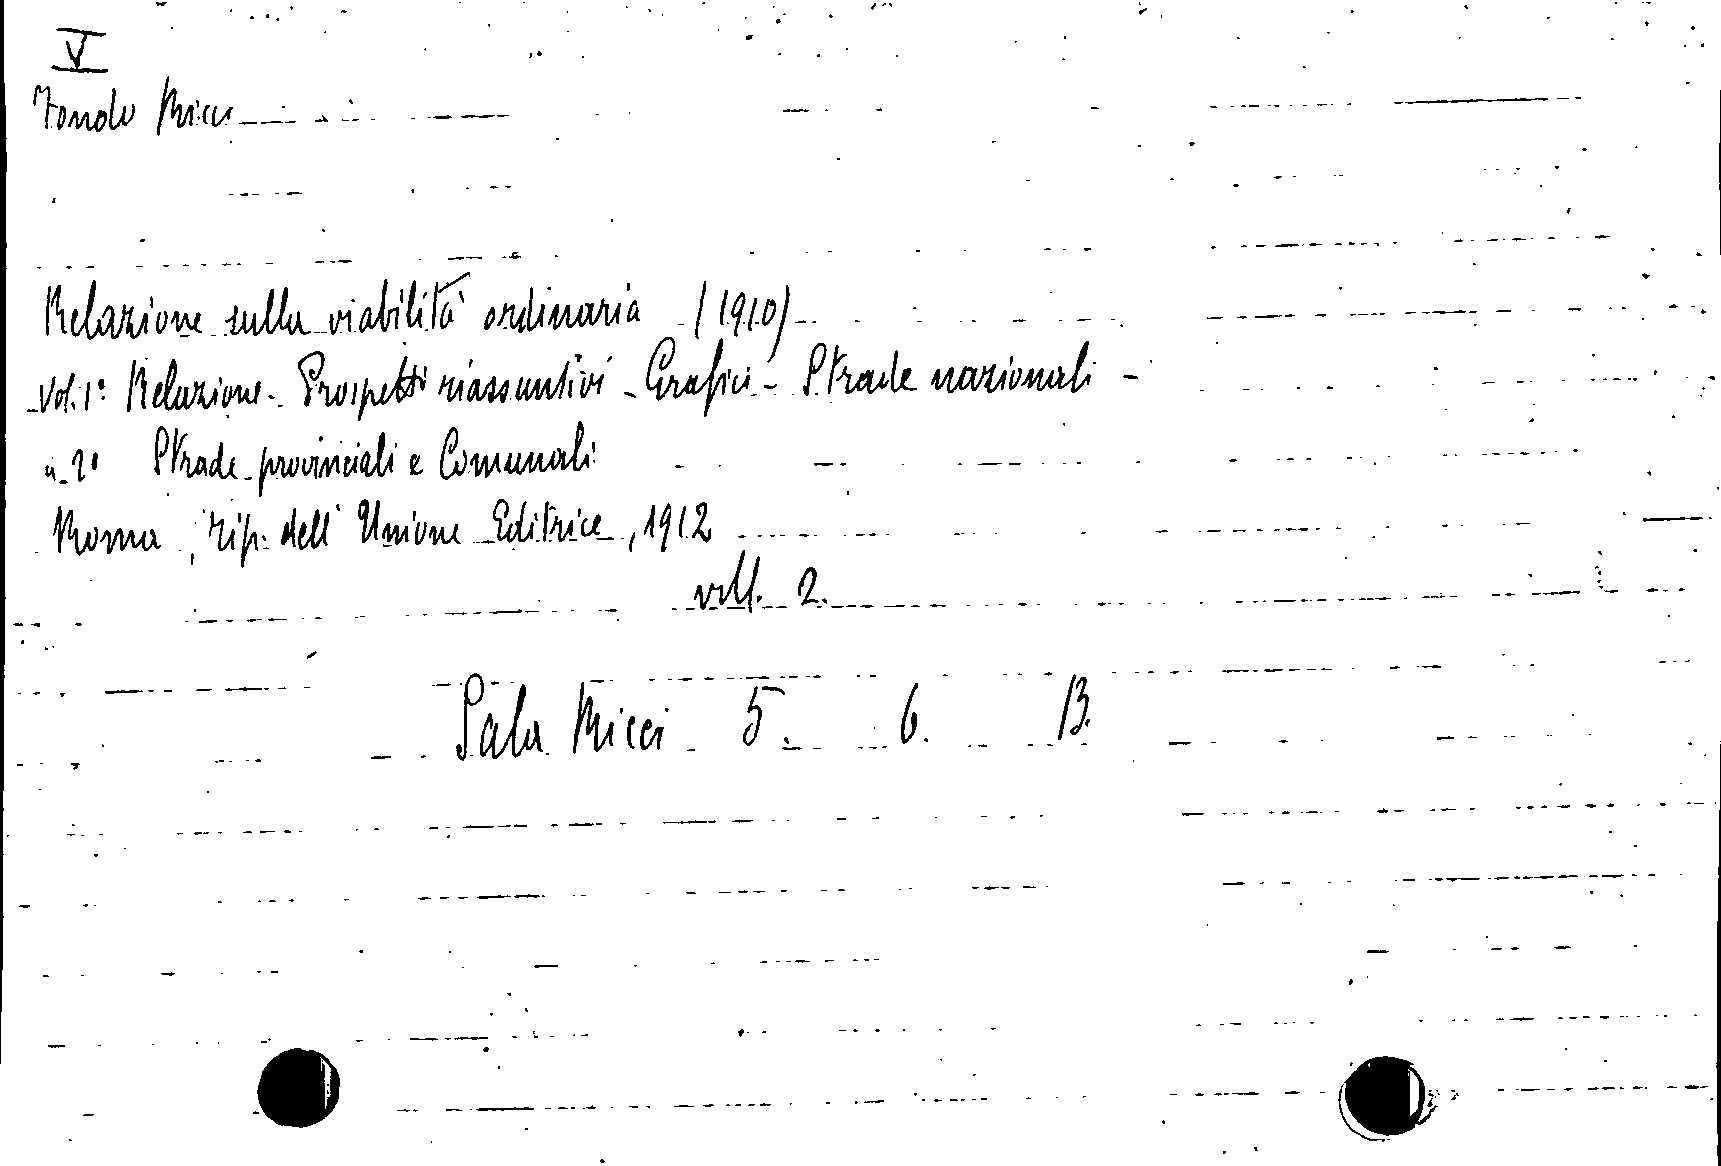 V
Fondo Ricci
Relazione sulla viabilità ordinaria (1910)
Vol. 1° Relazione - Prospetti riassuntivi - Grafici - Strade nazionali -
" 2° Strade provinciali e Comunali
Roma, Tip. dell'Unione Editrice, 1912
voll. 2.
Sala Ricci 5. 6. B.